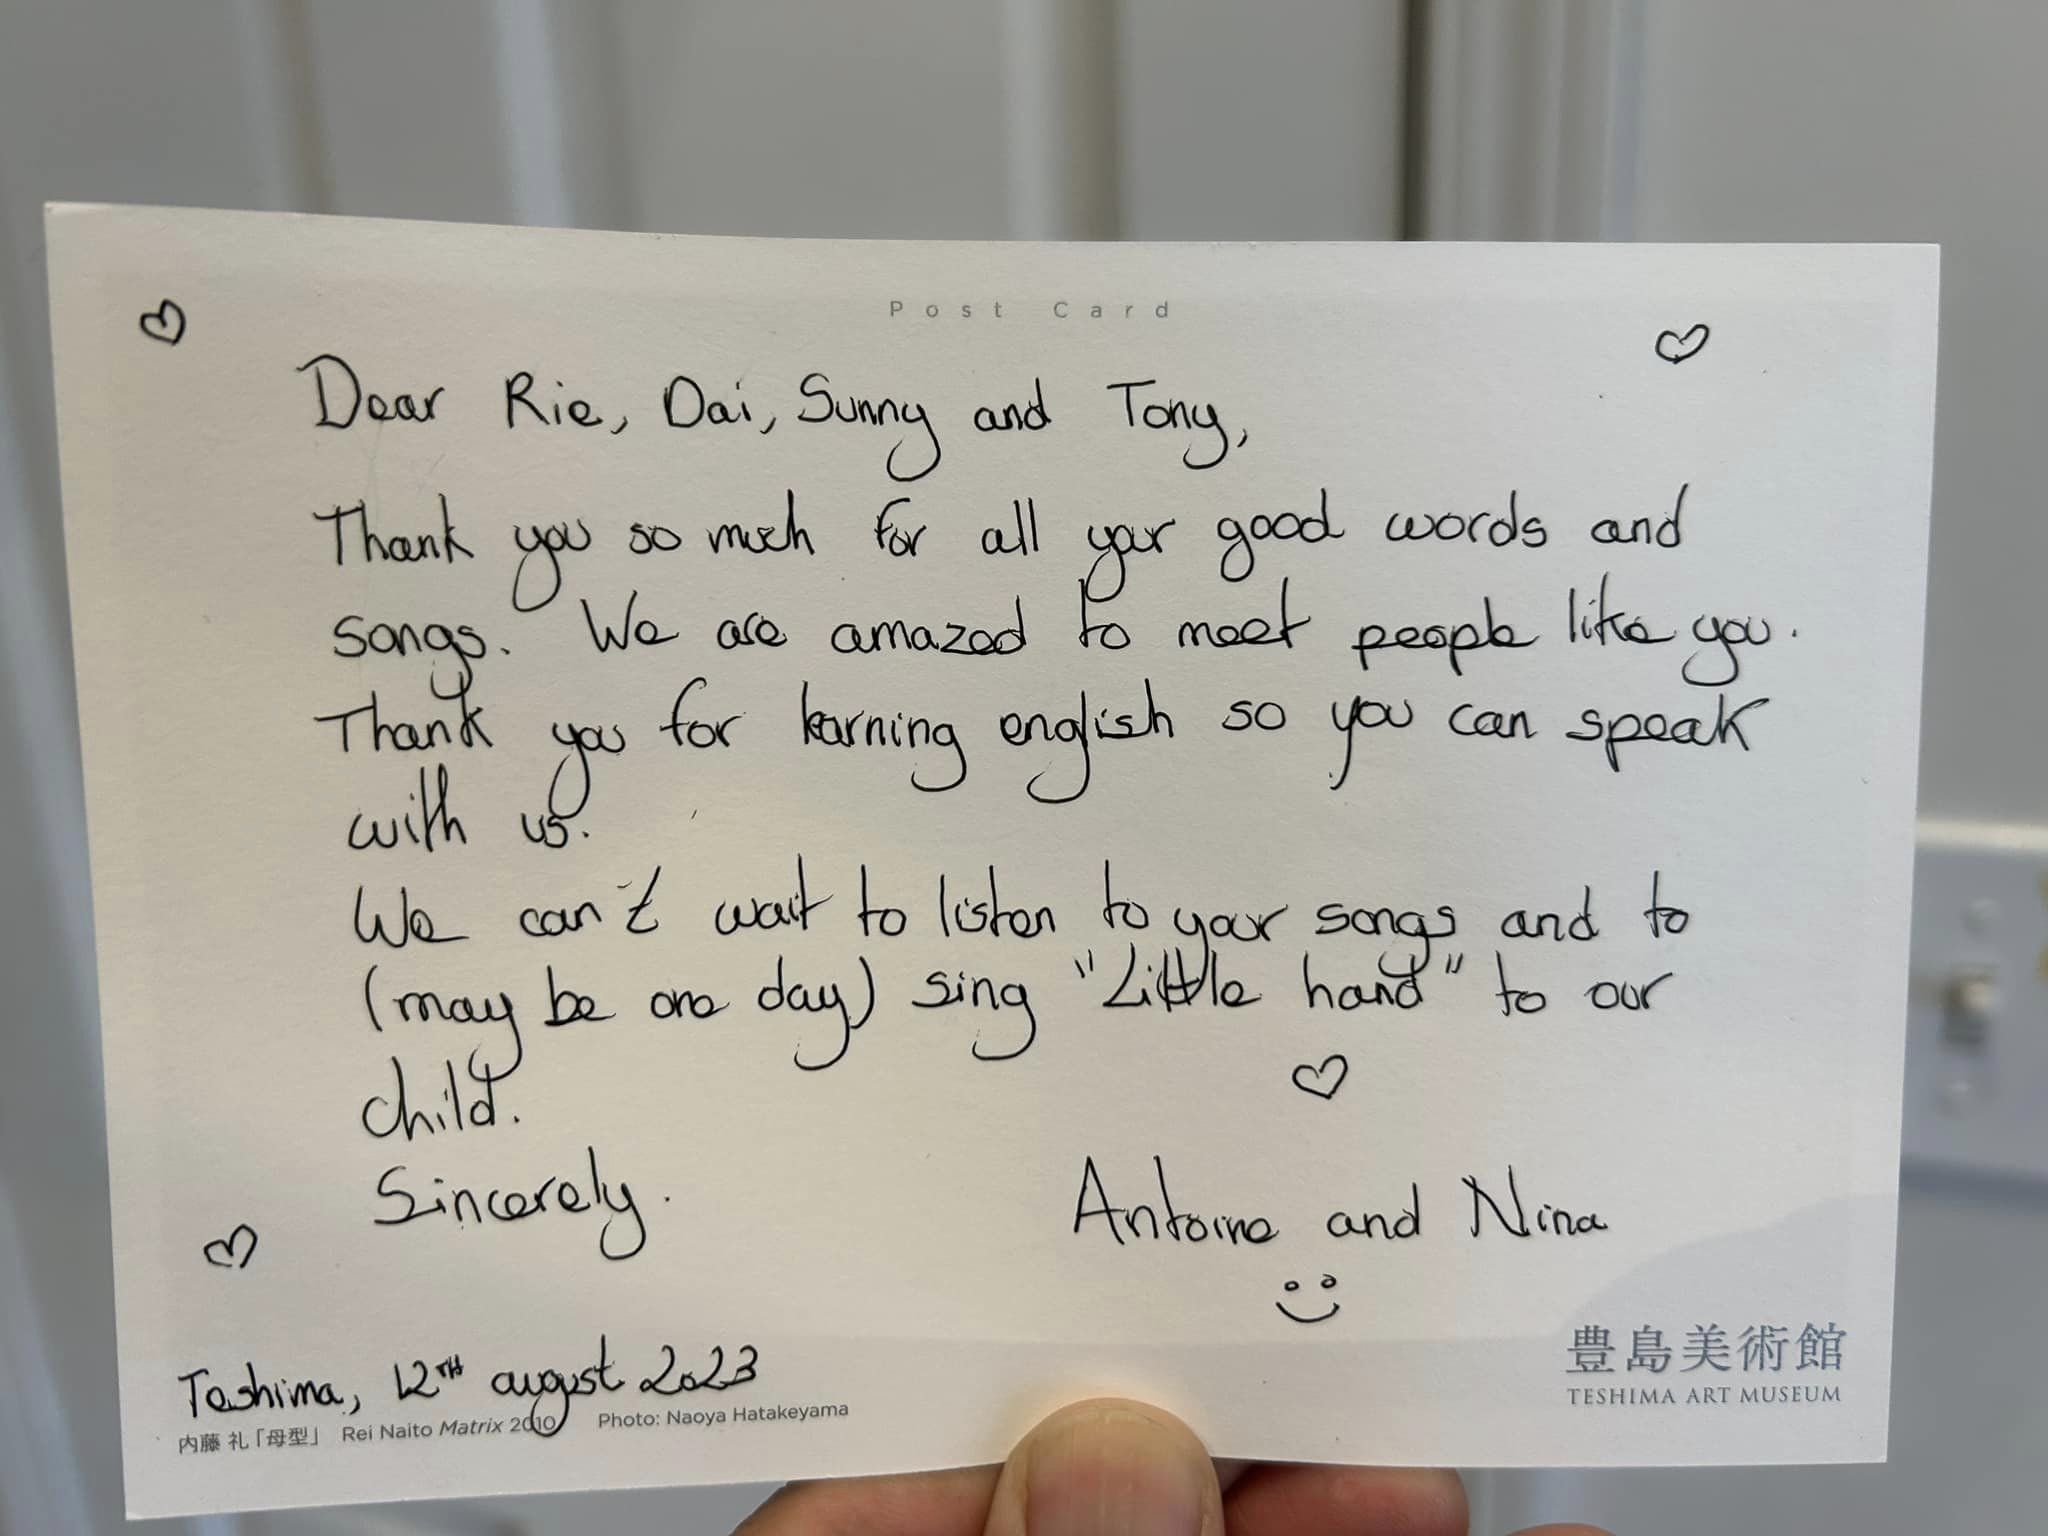 Post Card
Dear Rie, Dai, Sunny and Tony,
Thank you so much for all your good words and
songs. We are amazed to meet people like you.
Thank you for learning english so you can speak
with us.
We can't wait to listen to your songs and to
(may be one day) sing "Little hand" to our
child.
Sincerely.
Antoine and Nina
Teshima, 12TH august 2023
内藤 礼「母型」 Rei Naito Matrix 2010 Photo: Naoya Hatakeyama
豊島美術館
TESHIMA ART MUSEUM